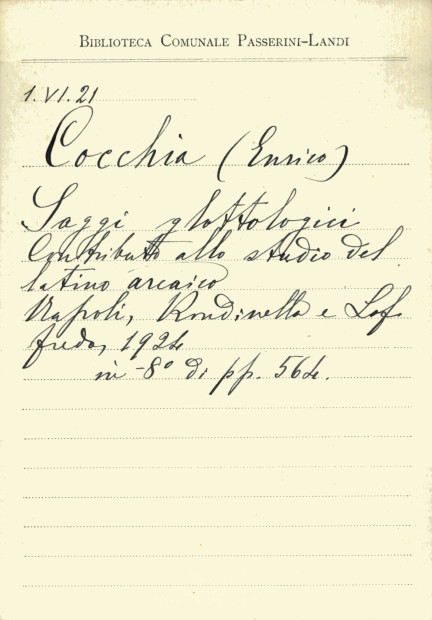 Biblioteca Comunale Passerini-Landi
1.VI.21
Cocchia (Enrico)
Saggi glottologici
Contributo allo studio del
latino arcaico
Napoli, Rondinella e Lof
fredo, 1924
in -8° di pp. 564.